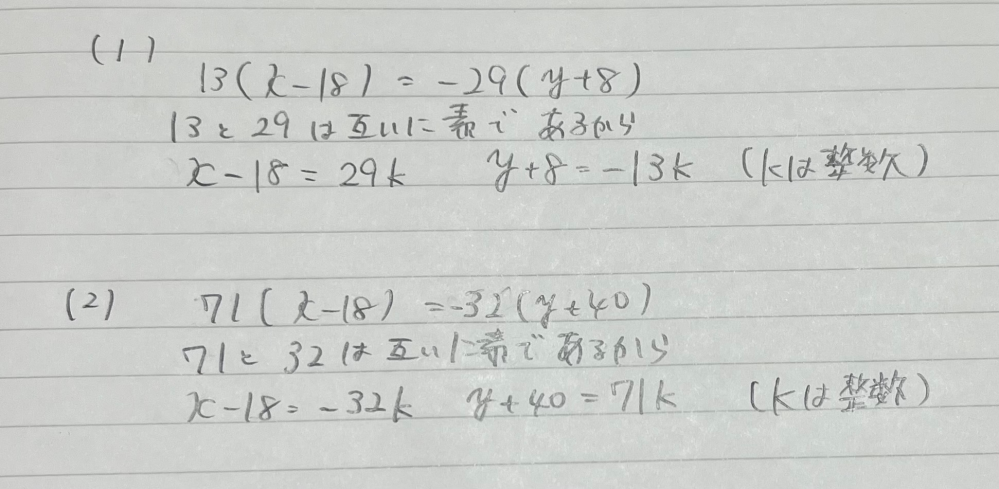 (1)
13(x-18) = -29(y+8)
13と29は互いに素であるから
x-18=29k y+8=-13k (kは整数)
(2) 71(x-18)=-32(y+40)
71と32は互いに素であるから
x-18=-32k y+40=71k (kは整数)